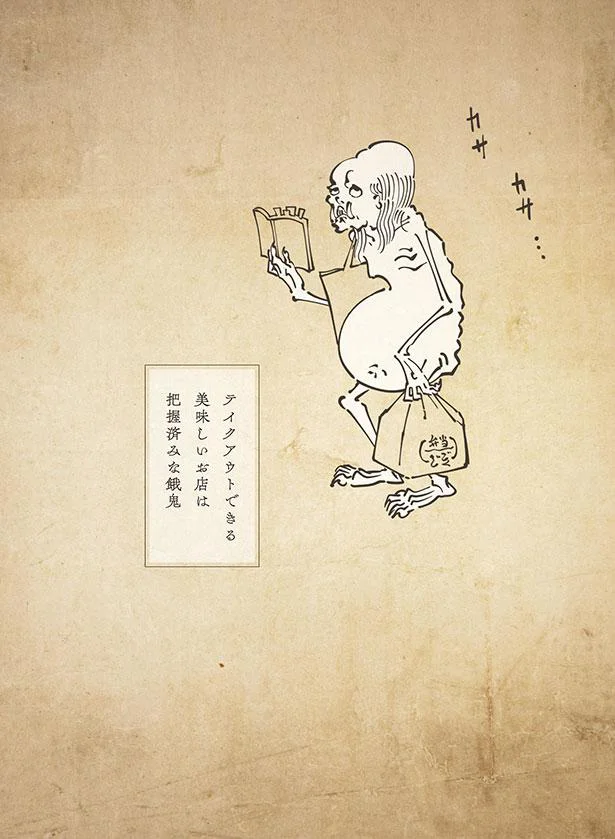 カサ
カサ…
テイクアウトできる
美味しいお店は
把握済みな餓鬼
弁当